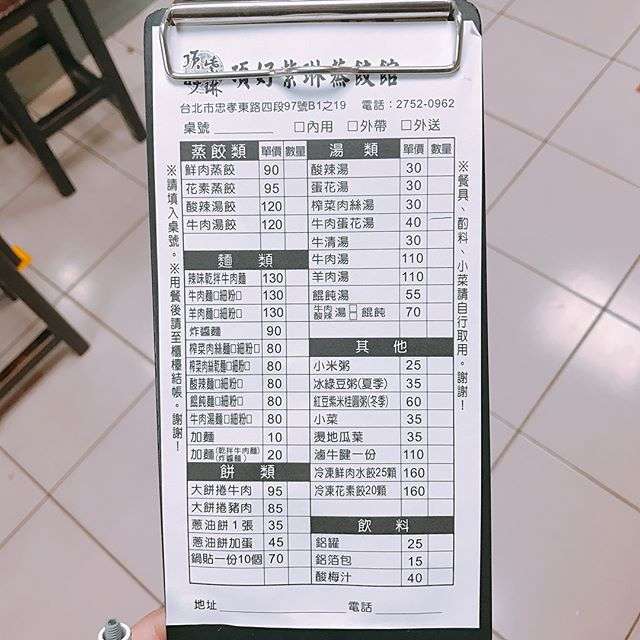 頂好紫琳蒸餃館
台北市忠孝東路四段97號B1之19 電話：2752-0962
桌號 □內用 □外帶 □外送
※請填入桌號。※用餐後請至櫃檯結帳。謝謝！
蒸餃類 單價 數量
鮮肉蒸餃 90
花素蒸餃 95
酸辣湯餃 120
牛肉湯餃 120
麵類
辣味乾拌牛肉麵 130
牛肉麵□細粉□ 130
羊肉麵□細粉□ 130
炸醬麵 90
榨菜肉絲麵□細粉□ 80
榨菜肉絲乾麵□細粉□ 80
酸辣麵□細粉□ 80
餛飩麵□細粉□ 80
牛肉湯麵□細粉□ 80
加麵 10
加麵(乾拌牛肉麵)(炸醬麵) 20
餅類
大餅捲牛肉 95
大餅捲豬肉 85
蔥油餅1張 35
蔥油餅加蛋 45
鍋貼一份10個 70
湯類 單價 數量
酸辣湯 30
蛋花湯 30
榨菜肉絲湯 30
牛肉蛋花湯 40
牛清湯 30
牛肉湯 110
羊肉湯 110
餛飩湯 55
牛肉□酸辣□湯餛飩 70
其他
小米粥 25
冰綠豆粥(夏季) 35
紅豆紫米桂圓粥(冬季) 60
小菜 35
燙地瓜葉 35
滷牛腱一份 110
冷凍鮮肉水餃25顆 160
冷凍花素餃20顆 160
飲料
鋁罐 25
鋁箔包 15
酸梅汁 40
※餐具、酌料、小菜請自行取用。謝謝！
地址 電話